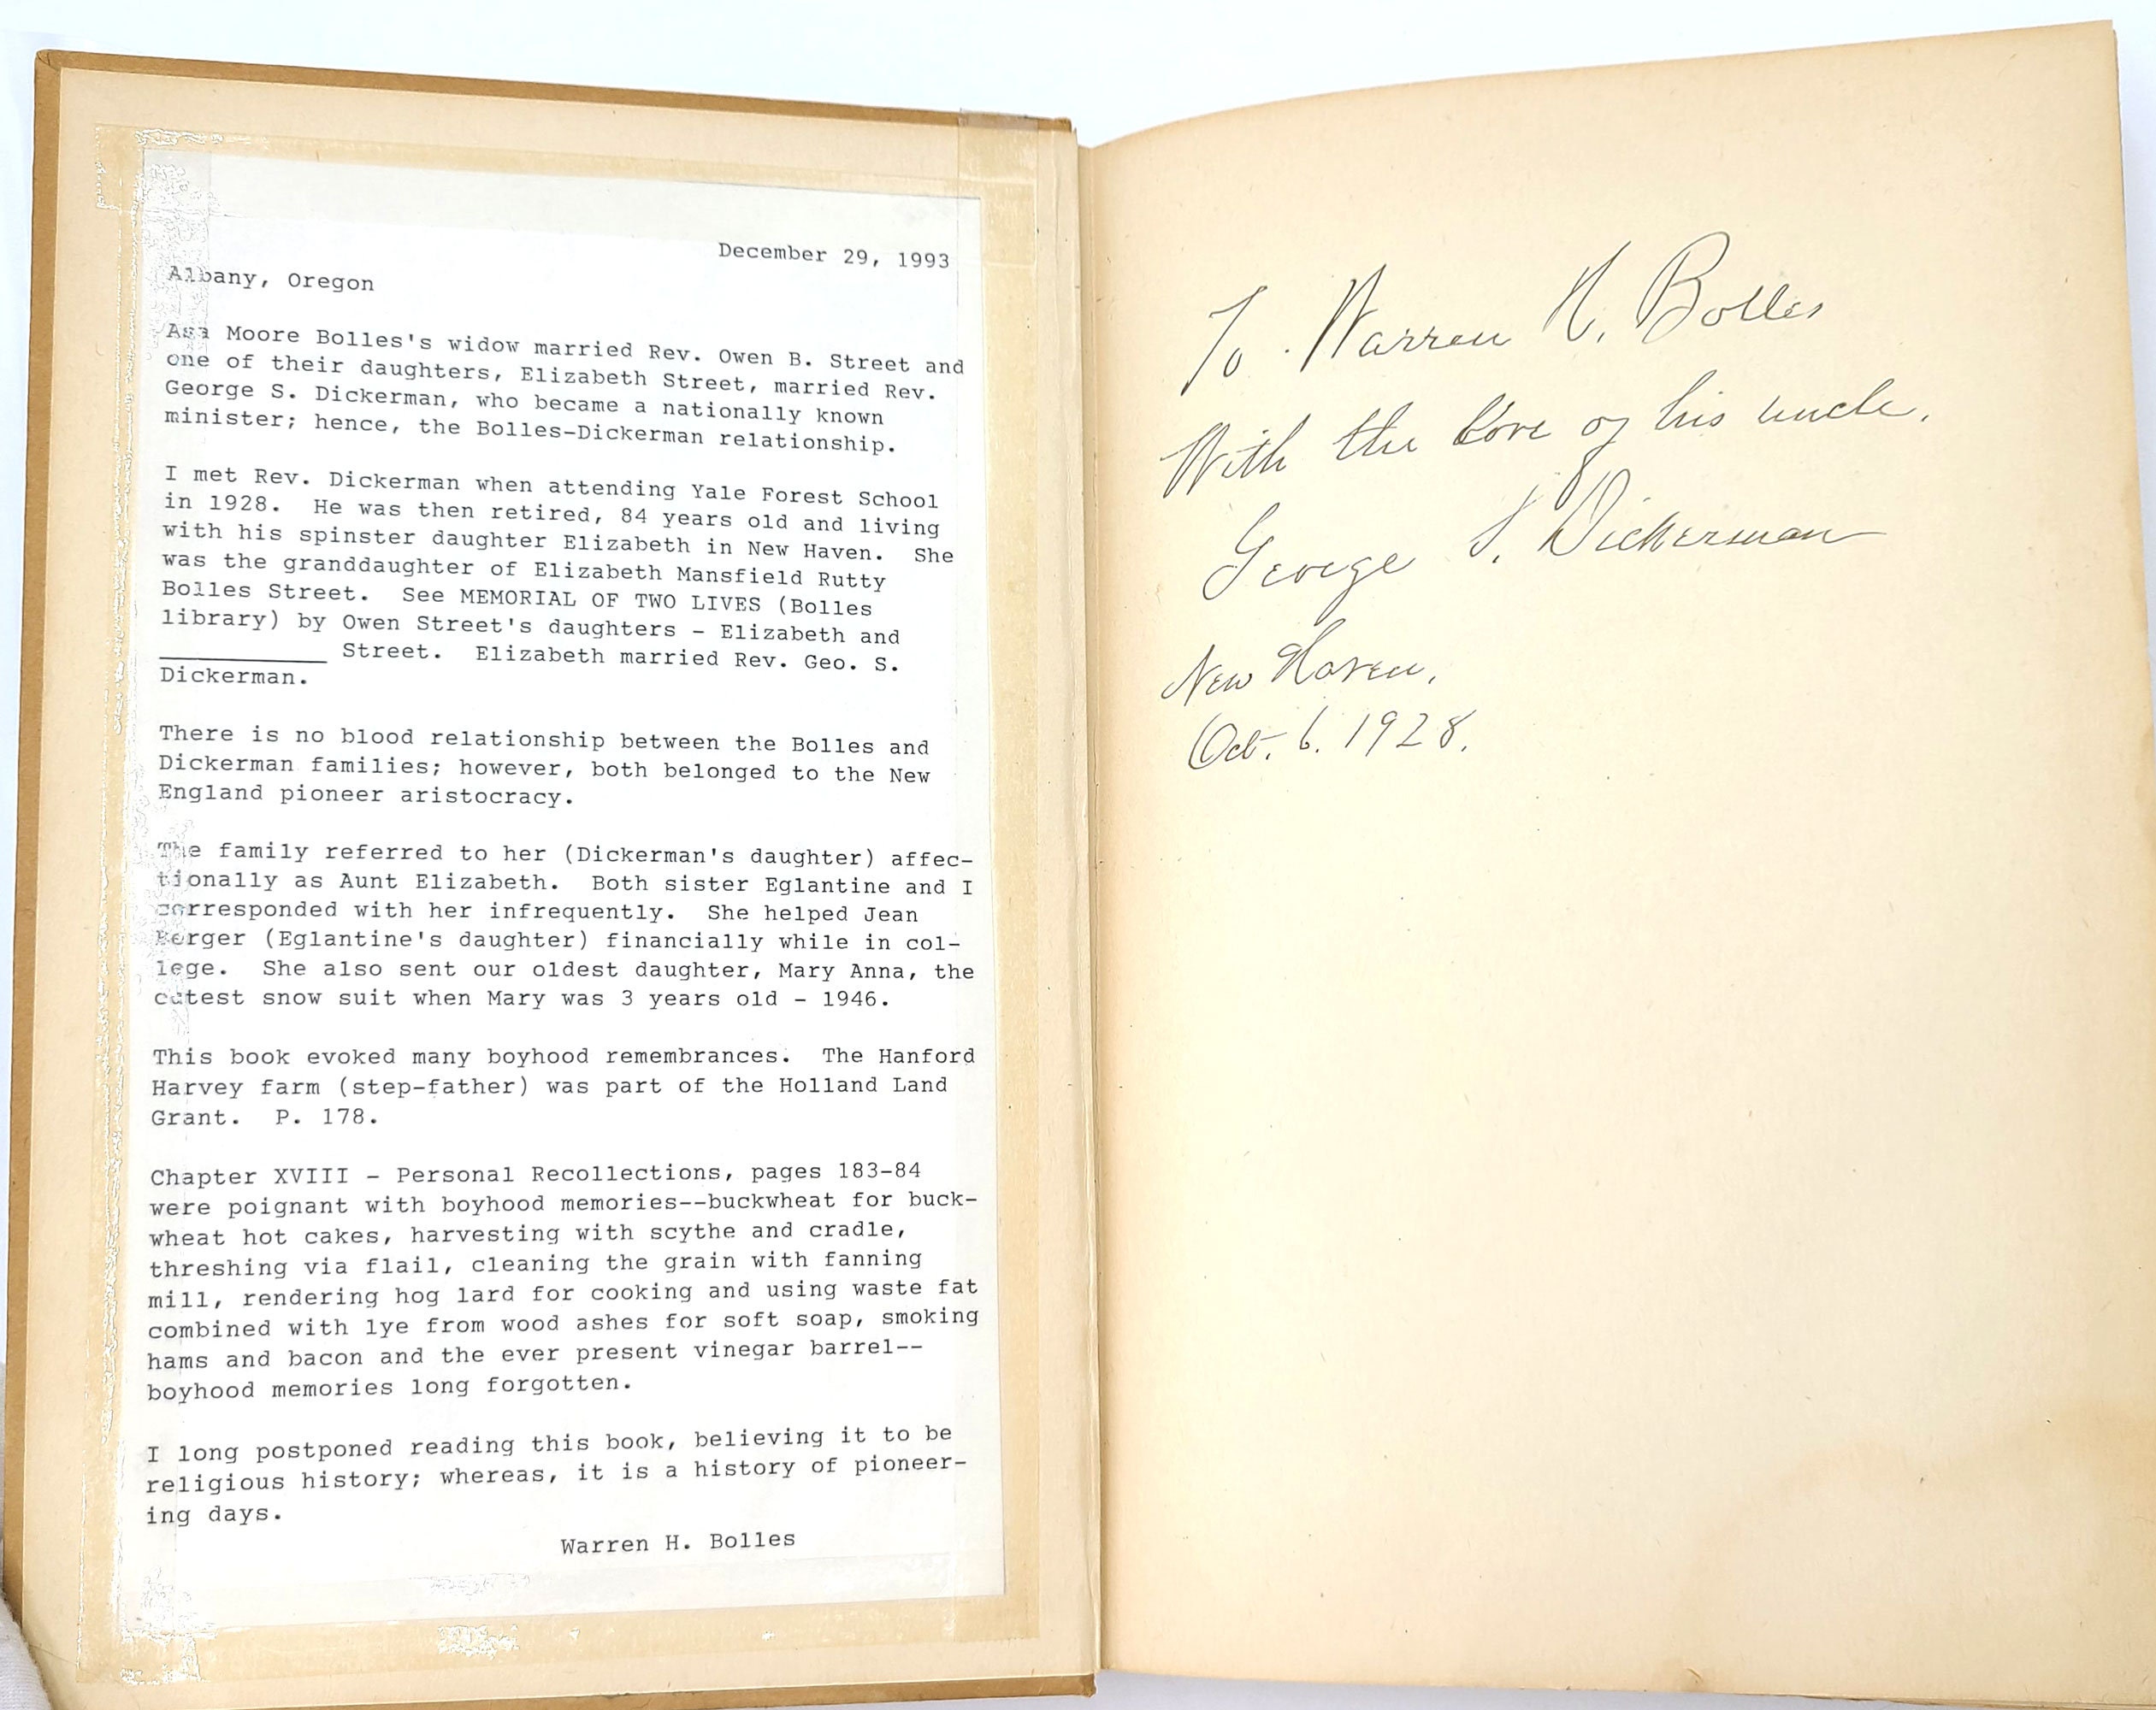 December 29, 1993
Albany, Oregon
Asa Moore Bolles's widow married Rev. Owen B. Street and
one of their daughters, Elizabeth Street, married Rev.
George S. Dickerman, who became a nationally known
minister; hence, the Bolles-Dickerman relationship.
I met Rev. Dickerman when attending Yale Forest School
in 1928. He was then retired, 84 years old and living
with his spinster daughter Elizabeth in New Haven. She
was the granddaughter of Elizabeth Mansfield Rutty
Bolles Street. See MEMORIAL OF TWO LIVES (Bolles
library) by Owen Street's daughters - Elizabeth and
___________ Street. Elizabeth married Rev. Geo. S.
Dickerman.
There is no blood relationship between the Bolles and
Dickerman families; however, both belonged to the New
England pioneer aristocracy.
The family referred to her (Dickerman's daughter) affec-
tionally as Aunt Elizabeth. Both sister Eglantine and I
corresponded with her infrequently. She helped Jean
Berger (Eglantine's daughter) financially while in col-
lege. She also sent our oldest daughter, Mary Anna, the
cutest snow suit when Mary was 3 years old - 1946.
This book evoked many boyhood remembrances. The Hanford
Harvey farm (step-father) was part of the Holland Land
Grant. P. 178.
Chapter XVIII - Personal Recollections, pages 183-84
were poignant with boyhood memories--buckwheat for buck-
wheat hot cakes, harvesting with scythe and cradle,
threshing via flail, cleaning the grain with fanning
mill, rendering hog lard for cooking and using waste fat
combined with lye from wood ashes for soft soap, smoking
hams and bacon and the ever present vinegar barrel--
boyhood memories long forgotten.
I long postponed reading this book, believing it to be
religious history; whereas, it is a history of pioneer-
ing days.
Warren H. Bolles
To Warren H. Bolles
With the love of his uncle,
George S. Dickerman
New Haven,
Oct. 6. 1928.